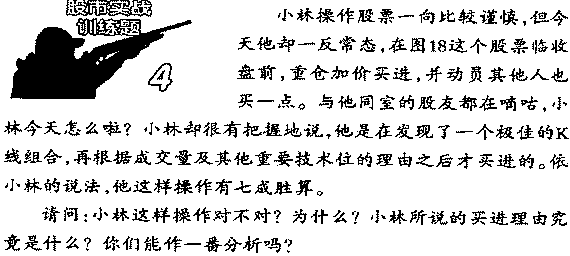 股市实战
训练题
4
小林操作股票一向比较谨慎,但今
天他却一反常态,在图18这个股票临收
盘前,重仓加价买进,并动员其他人也
买一点。与他同室的股友都在嘀咕,小
林今天怎么啦?小林却很有把握地说,他是在发现了一个极佳的K
线组合,再根据成交量及其他重要技术位的理由之后才买进的。依
小林的说法,他这样操作有七成胜算。
请问:小林这样操作对不对?为什么?小林所说的买进理由究
竟是什么?你们能作一番分析吗?